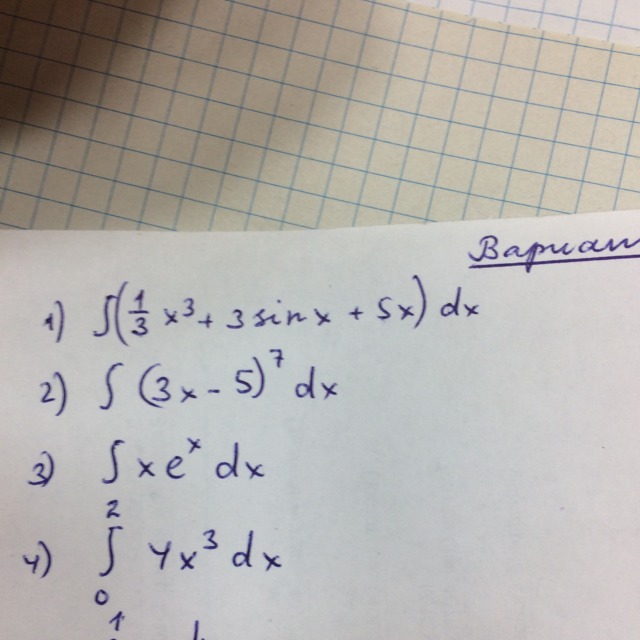 Вариан
1) ∫(1/3 x³ + 3 sin x + 5x) dx
2) ∫ (3x - 5)⁷ dx
3) ∫ x eˣ dx
4) ∫₀² 4x³ dx
1